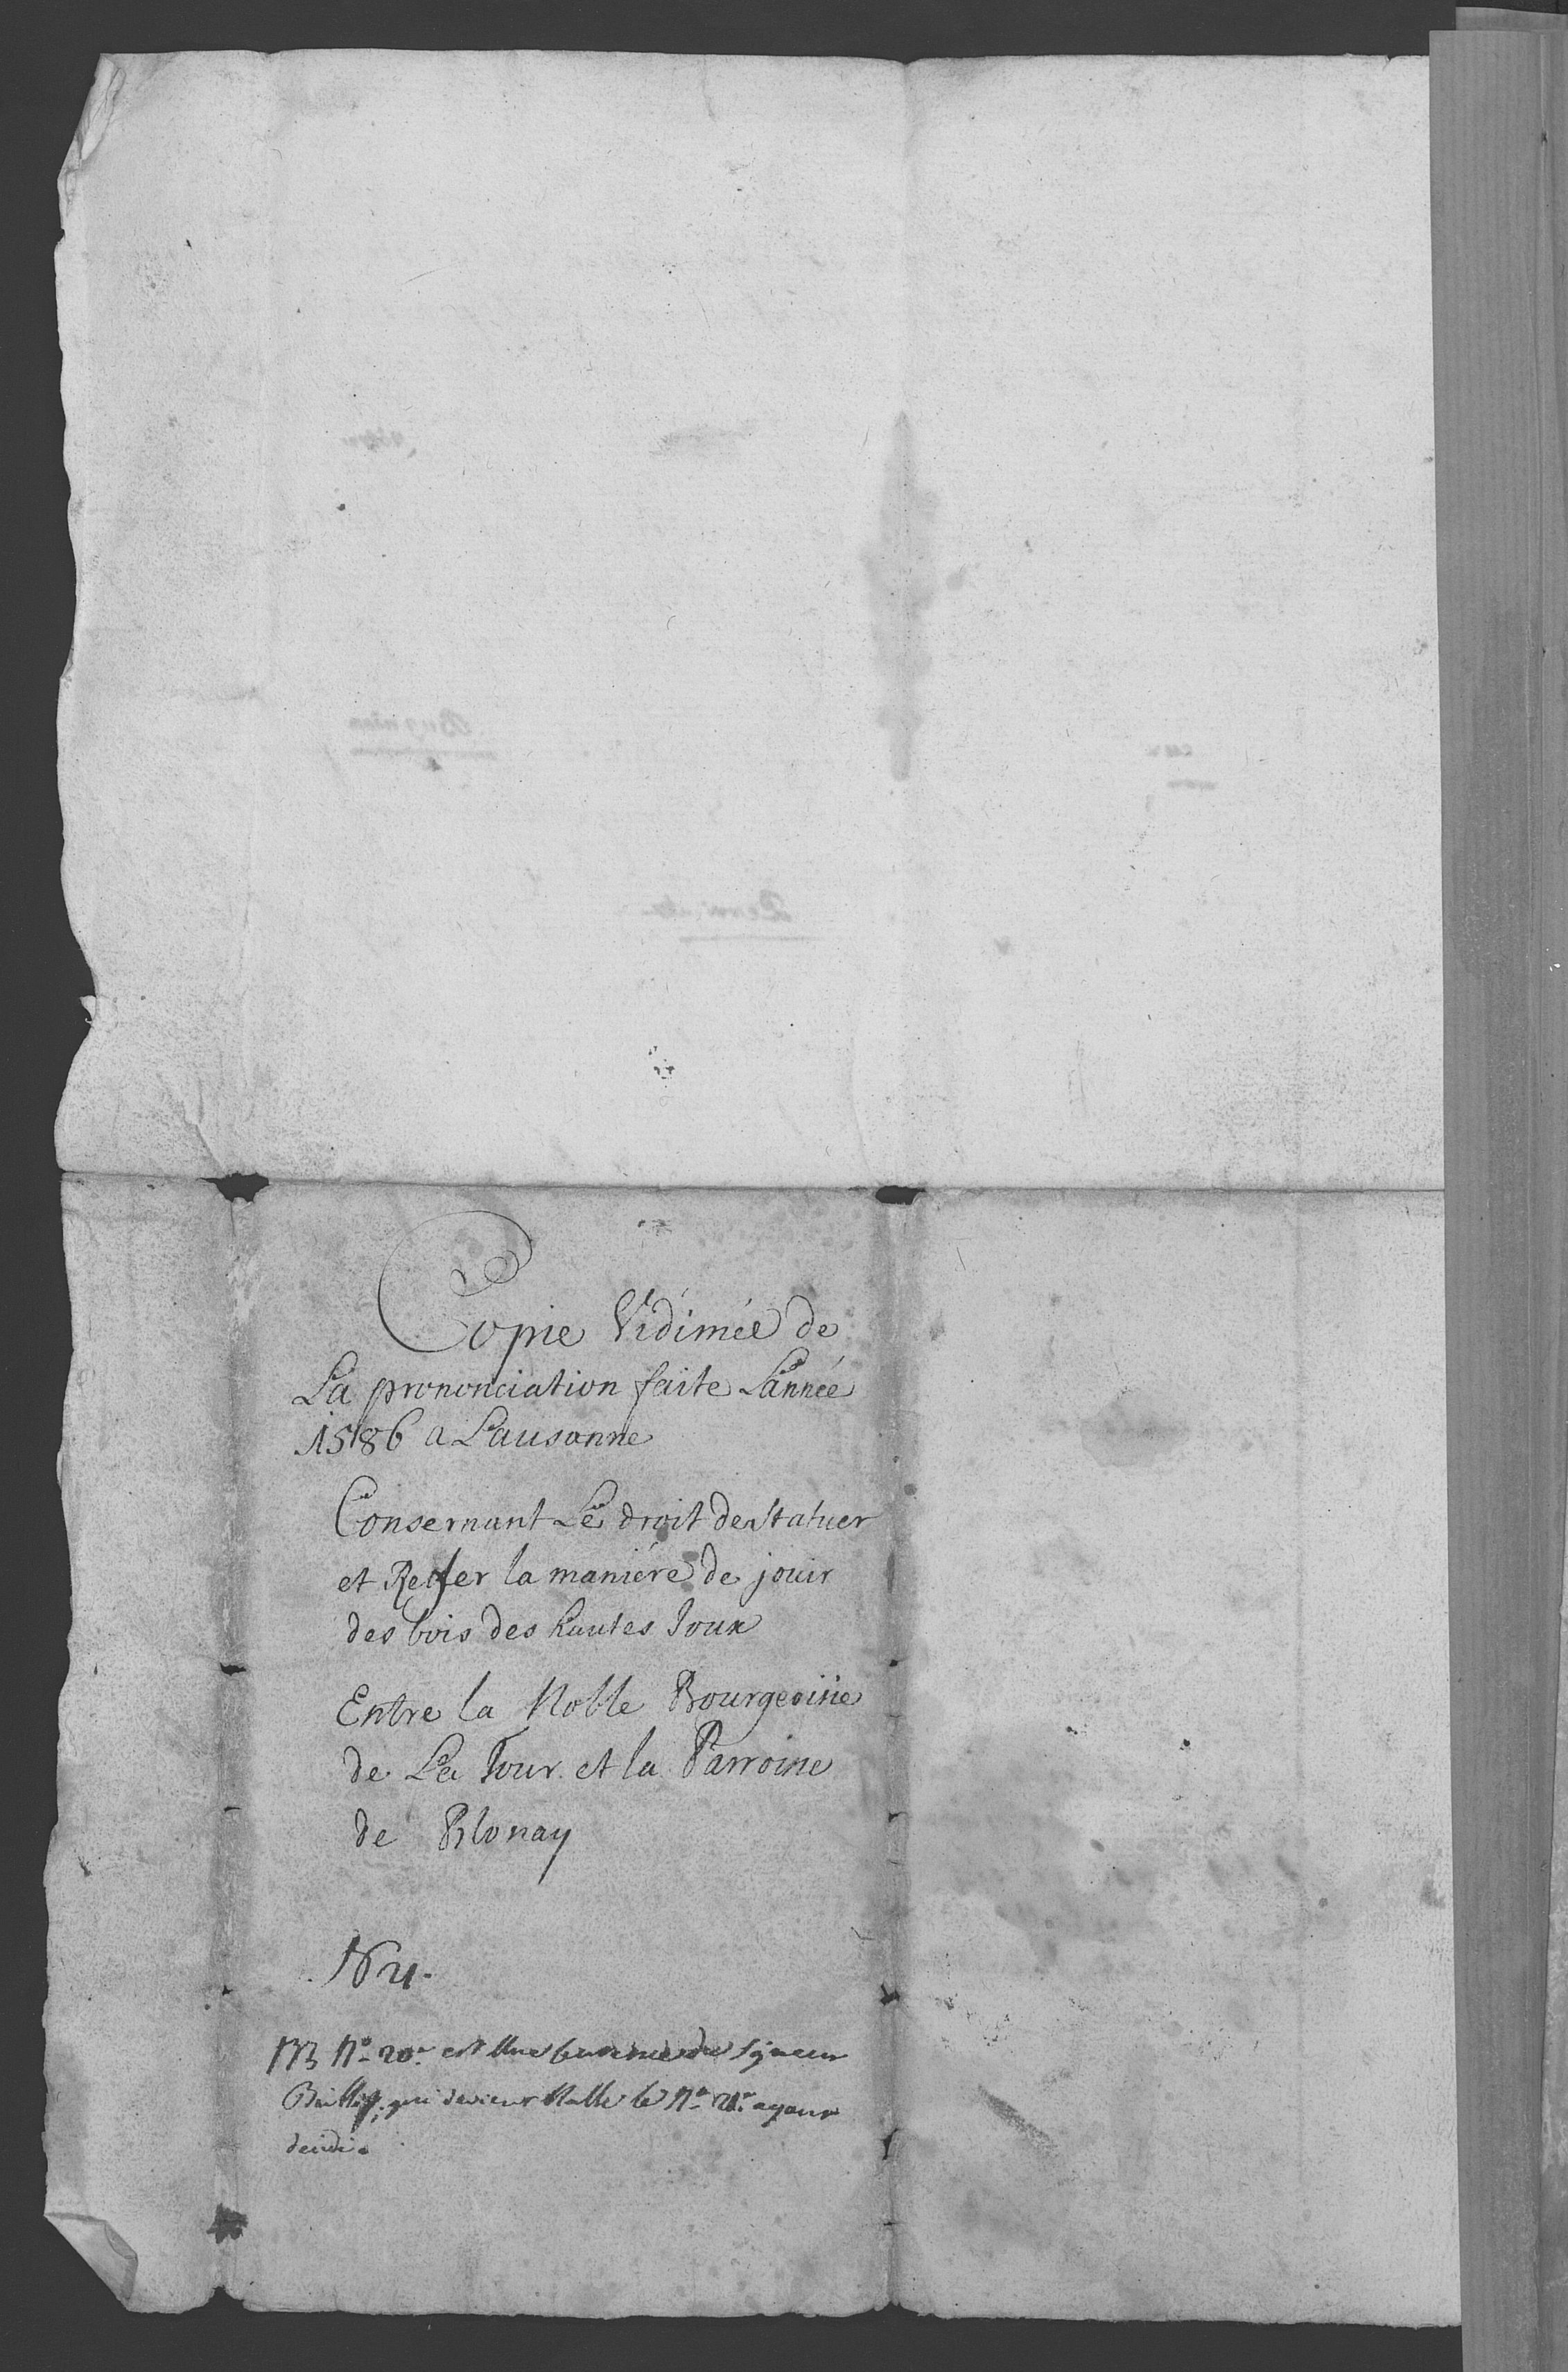 Copie Vidimée de
La prononciation faite L'année
1586 a Lausanne
Consernant Le droit de statuer
et Regler la maniére de jouir
des bois des hautes Joux
Entre la Noble Bourgeoisie
de La Tour et la Parroisse
de Blonay
No 21.
NB No 20. est Une du Sgneur
Baillif, qui devient Nulle le No 21. ayant
decidé.